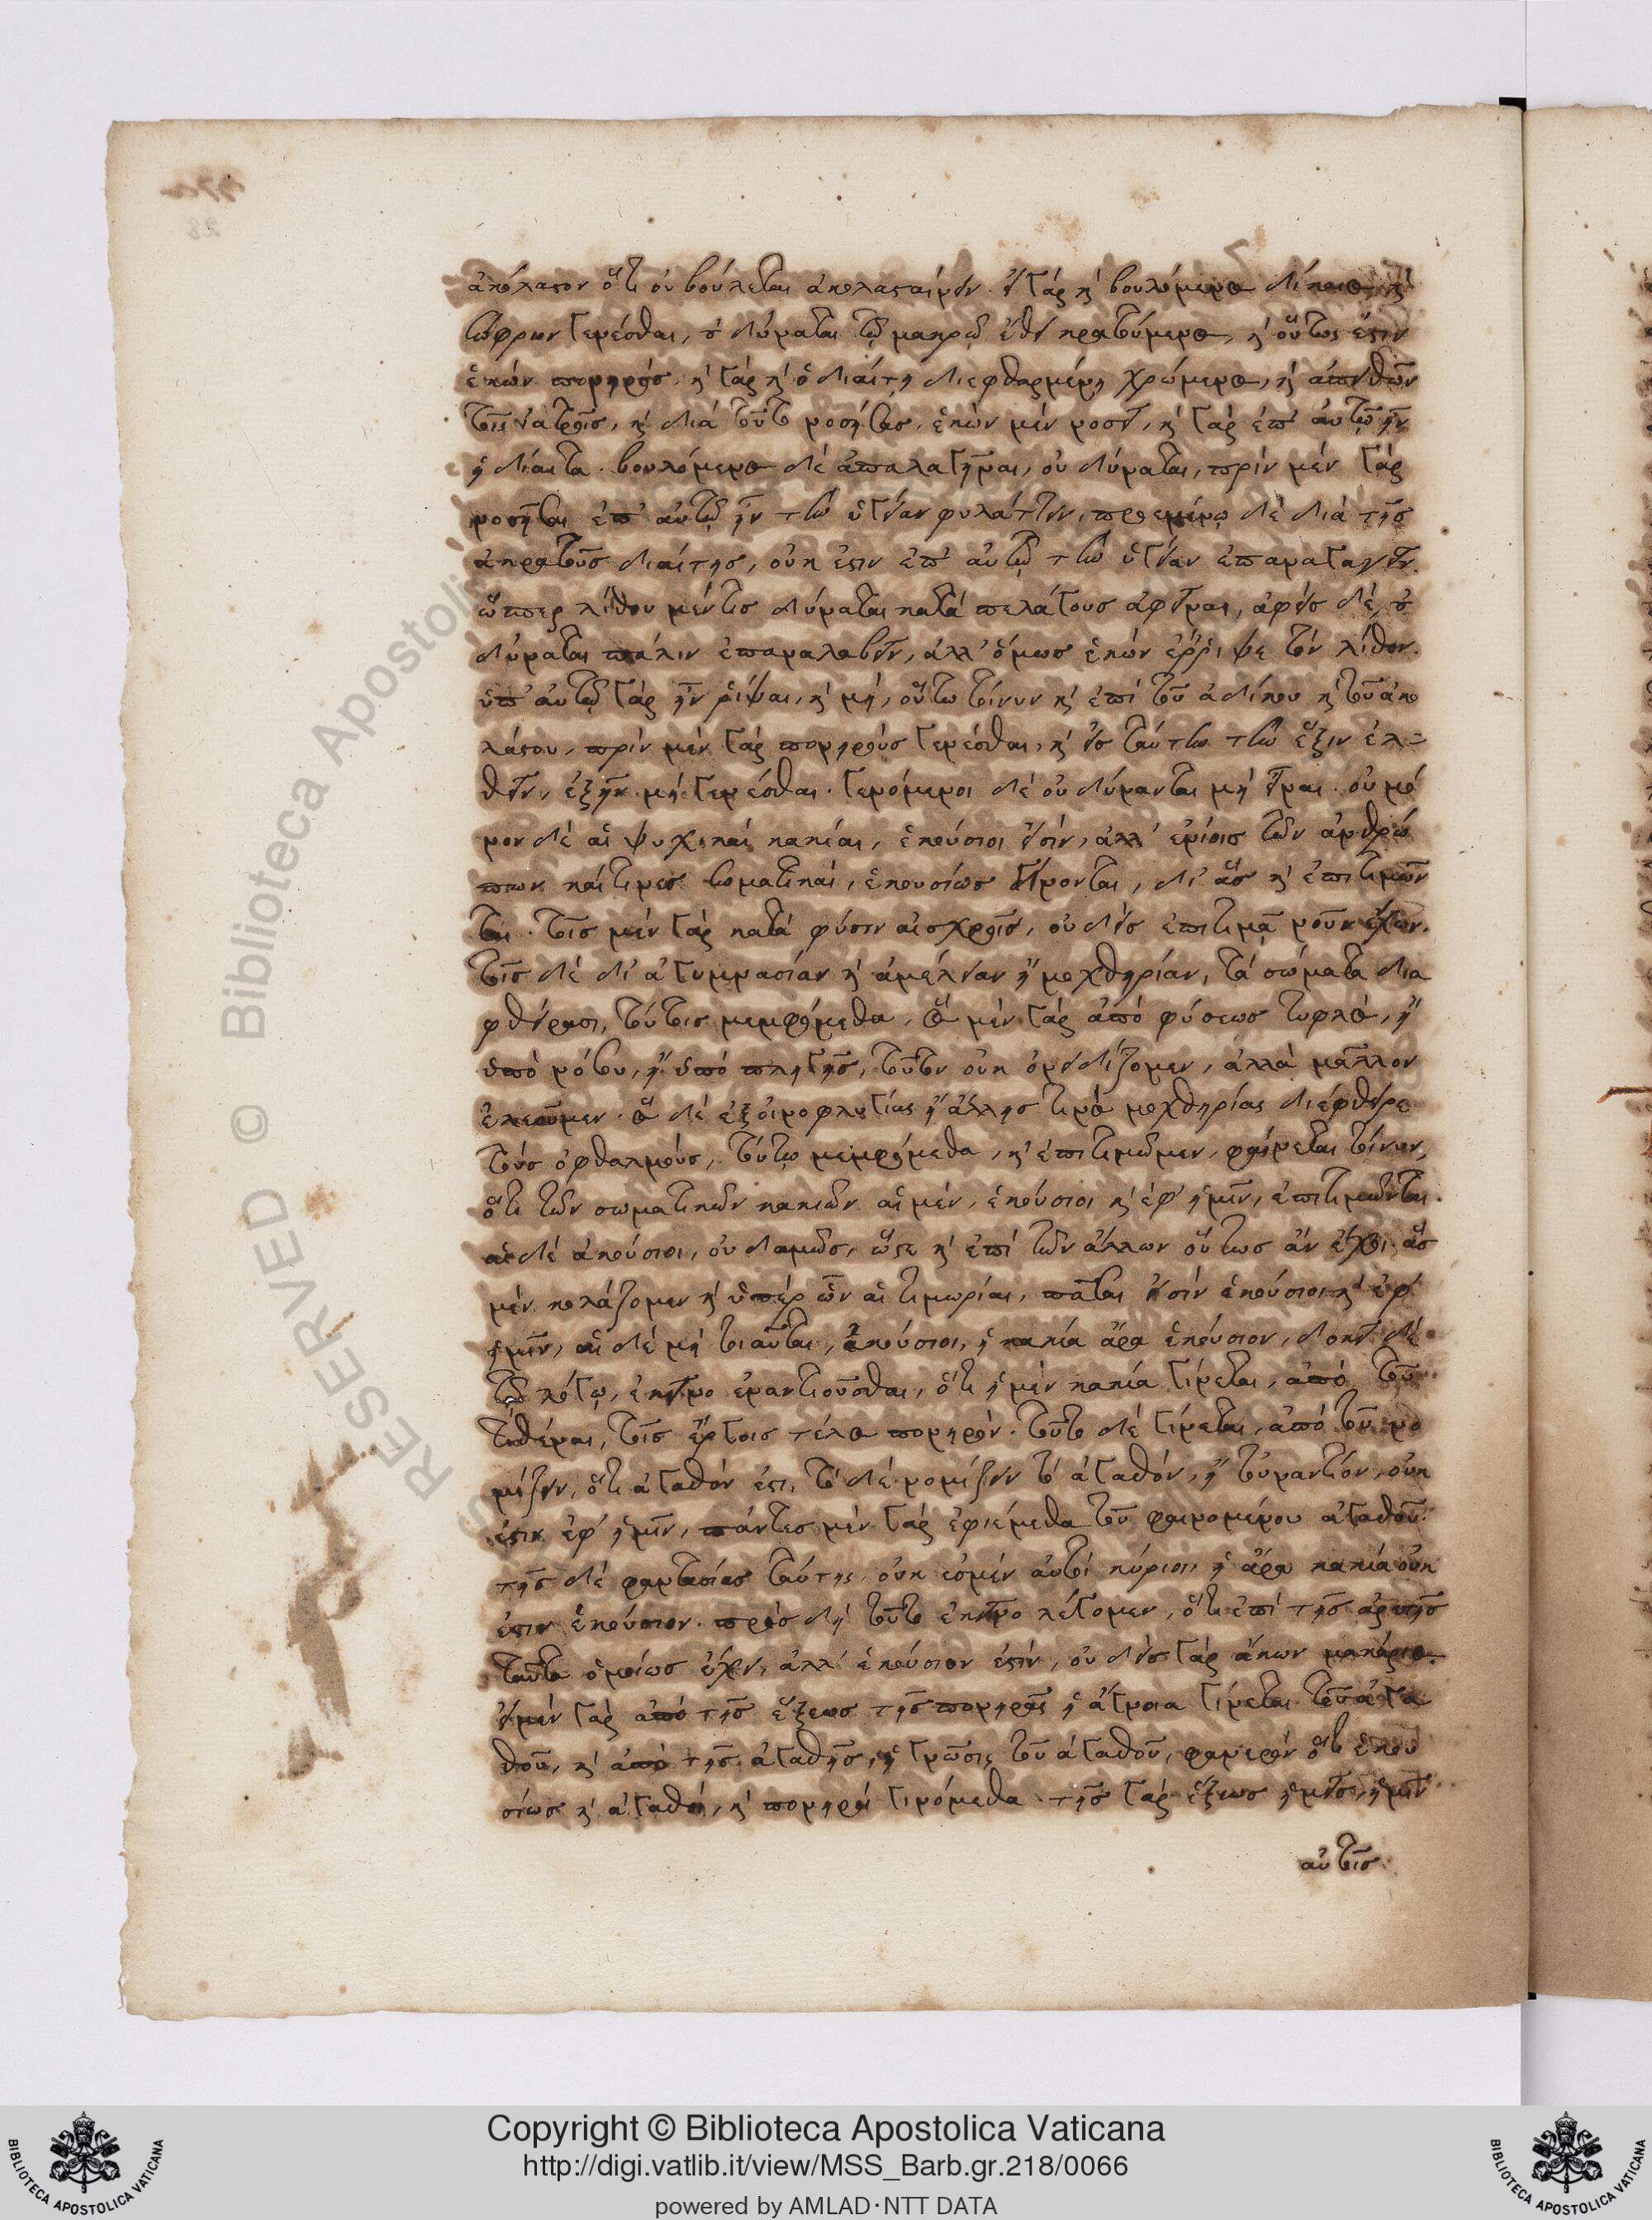 ἀκόλαστον ὅτι οὐ βούλεται ἀκολασταίνειν. εἰ γὰρ καὶ βουλόμενος δίκαιος, καὶ
σώφρων γενέσθαι, οὐ δύναται τῷ μακρῷ ἔθει κρατούμενος, καὶ οὕτως ἐστὶν
ἑκὼν πονηρός. καὶ γὰρ καὶ ὁ διαίτῃ διεφθαρμένῃ χρώμενος, καὶ ἀπειθῶν
τοῖς ἰατροῖς, καὶ διὰ τοῦτο νοσήσας, ἑκὼν μὲν νοσεῖ, καὶ γὰρ ἐπ' αὐτῷ ἦν
ἡ δίαιτα. βουλόμενος δὲ ἀπαλαγῆναι, οὐ δύναται, πρὶν μὲν γὰρ
νοσῆσαι ἐπ' αὐτῷ ἦν τὴν ὑγείαν φυλάττειν, προεμένῳ δὲ διὰ τῆς
ἀκρατοῦς διαίτης, οὐκ ἔστιν ἐπ' αὐτῷ τὴν ὑγείαν ἐπαναγαγεῖν.
ὥσπερ λίθον μέν τις δύναται κατὰ πελάγους ἀφεῖναι, ἀφεὶς δὲ, οὐ
δύναται πάλιν ἐπαναλαβεῖν, ἀλλ' ὅμως ἑκὼν ἔῤῥιψε τὸν λίθον.
ἐπ' αὐτῷ γὰρ ἦν ῥίψαι, καὶ μὴ, οὕτω τοίνυν καὶ ἐπὶ τοῦ ἀδίκου καὶ τοῦ ἀκο
λάστου, πρὶν μὲν γὰρ πονηροὺς γενέσθαι, καὶ εἰς ταύτην τὴν ἕξιν ἐλ=
θεῖν, ἐξῆν μὴ γενέσθαι. γενόμενοι δὲ οὐ δύνανται μὴ εἶναι. οὐ μό
νον δὲ αἱ ψυχικαὶ κακίαι, ἑκούσιοι εἰσὶν, ἀλλ' ἐνίοις τῶν ἀνθρώ
πων καί τινες σωματικαὶ, ἑκουσίως γίνονται, δι' ἃς καὶ ἐπιτιμῶν
ται. τοῖς μὲν γὰρ κατὰ φύσιν αἰσχροῖς, οὐδεὶς ἐπιτιμᾷ νοῦν ἔχων.
τοῖς δὲ δι' ἀγυμνασίαν καὶ ἀμέλειαν ἢ μοχθηρίαν, τὰ σώματα δια
φθείρασι, τούτοις μεμφόμεθα, ὃς μὲν γὰρ ἀπὸ φύσεως τυφλὸς, ἢ
ὑπὸ νόσου, ἢ ὑπὸ πληγῆς, τοῦτον οὐκ ὀνειδίζομεν, ἀλλὰ μᾶλλον
ἐλεοῦμεν. ὃς δὲ ἐξ οἰνοφλυγίας ἢ ἄλλης τινὸς μοχθηρίας διέφθειρε
τοὺς ὀφθαλμοὺς, τούτῳ μεμφόμεθα, καὶ ἐπιτιμῶμεν, φαίνεται τοίνυν,
ὅτι τῶν σωματικῶν κακιῶν αἱ μὲν, ἑκούσιοι καὶ ἐφ' ἡμῖν, ἐπιτιμῶνται.
αἱ δὲ ἀκούσιοι, οὐδαμῶς, ὥστε καὶ ἐπὶ τῶν ἄλλων οὕτως ἂν ἔχοι ἃς
μὲν κολάζομεν καὶ ὑπὲρ ὧν αἱ τιμωρίαι, πᾶσαι εἰσὶν ἑκούσιοι καὶ ἐφ'
ἡμῖν, αἱ δὲ μὴ τοιαῦται, ἀκούσιοι, ἡ κακία ἄρα ἑκούσιον, δοκεῖ δὲ
τῷ λόγῳ, ἐκεῖνο ἐναντιοῦσθαι, ὅτι ἡ μὲν κακία γίνεται, ἀπὸ τοῦ
τιθέναι, τοῖς ἔργοις τέλος πονηρόν. τοῦτο δὲ γίνεται, ἀπὸ τοῦ νο
μίζειν, ὅτι ἀγαθόν ἐστι, τὸ δὲ νομίζειν τὸ ἀγαθὸν, ἢ τοὐναντίον, οὐκ
ἔστιν ἐφ' ἡμῖν, πάντες μὲν γὰρ ἐφιέμεθα τοῦ φαινομένου ἀγαθοῦ.
τῆς δὲ φαντασίας ταύτης, οὐκ ἐσμὲν αὐτοὶ κύριοι, ἡ ἄρα κακία οὐκ
ἔστιν ἑκούσιον. πρὸς δὴ τοῦτο ἐκεῖνο λέγομεν, ὅτι ἐπὶ τῆς ἀρετῆς
ταῦτα ὁμοίως ἔχει, ἀλλ' ἑκούσιον ἐστὶν, οὐδεὶς γὰρ ἄκων μακάριος.
εἰ μὲν γὰρ ἀπὸ τῆς ἕξεως τῆς πονηρᾶς ἡ ἄγνοια γίνεται τοῦ ἀγα
θοῦ, καὶ ἀπὸ τῆς ἀγαθῆς, ἡ γνῶσις τοῦ ἀγαθοῦ, φανερὸν ὅτι ἑκου
σίως καὶ ἀγαθοὶ, καὶ πονηροὶ γινόμεθα. τῆς γὰρ ἕξεως ἡμεῖς, ἡμῖν
αὐτοῖς